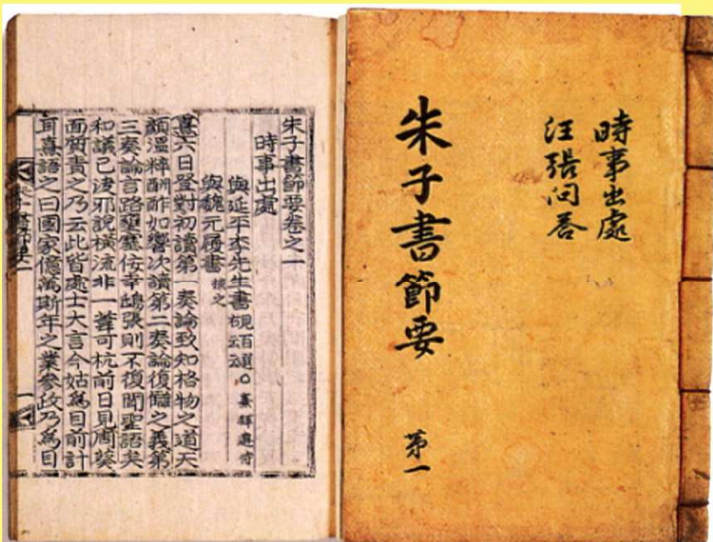 時事出處
汪張問答
朱子書節要 第一
朱子書節要卷之一
時事出處
與延平李先生書
與魏元履書 掞之
熹六日登對初讀第一奏論致知格物之道天
顏溫粹酬酢如響次讀第二奏論復讎之義第
三奏論言路壅塞佞幸鴟張則不復聞聖語矣
和議已決邪說橫流非一葦可杭前日見周葵
面質責之乃云此皆處士大言今姑爲目前計
耳熹語之曰國家億萬斯年之業參政乃爲目